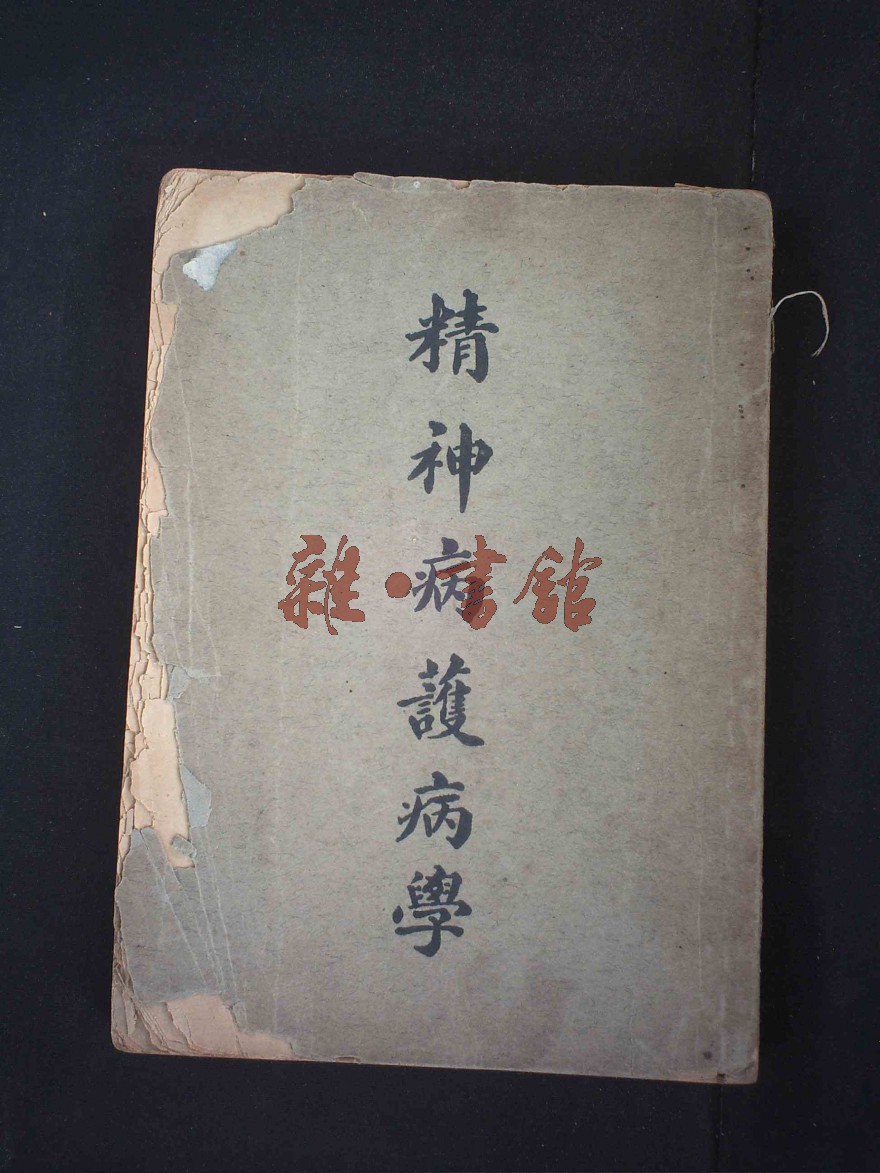 精神病護病學
雜·書館